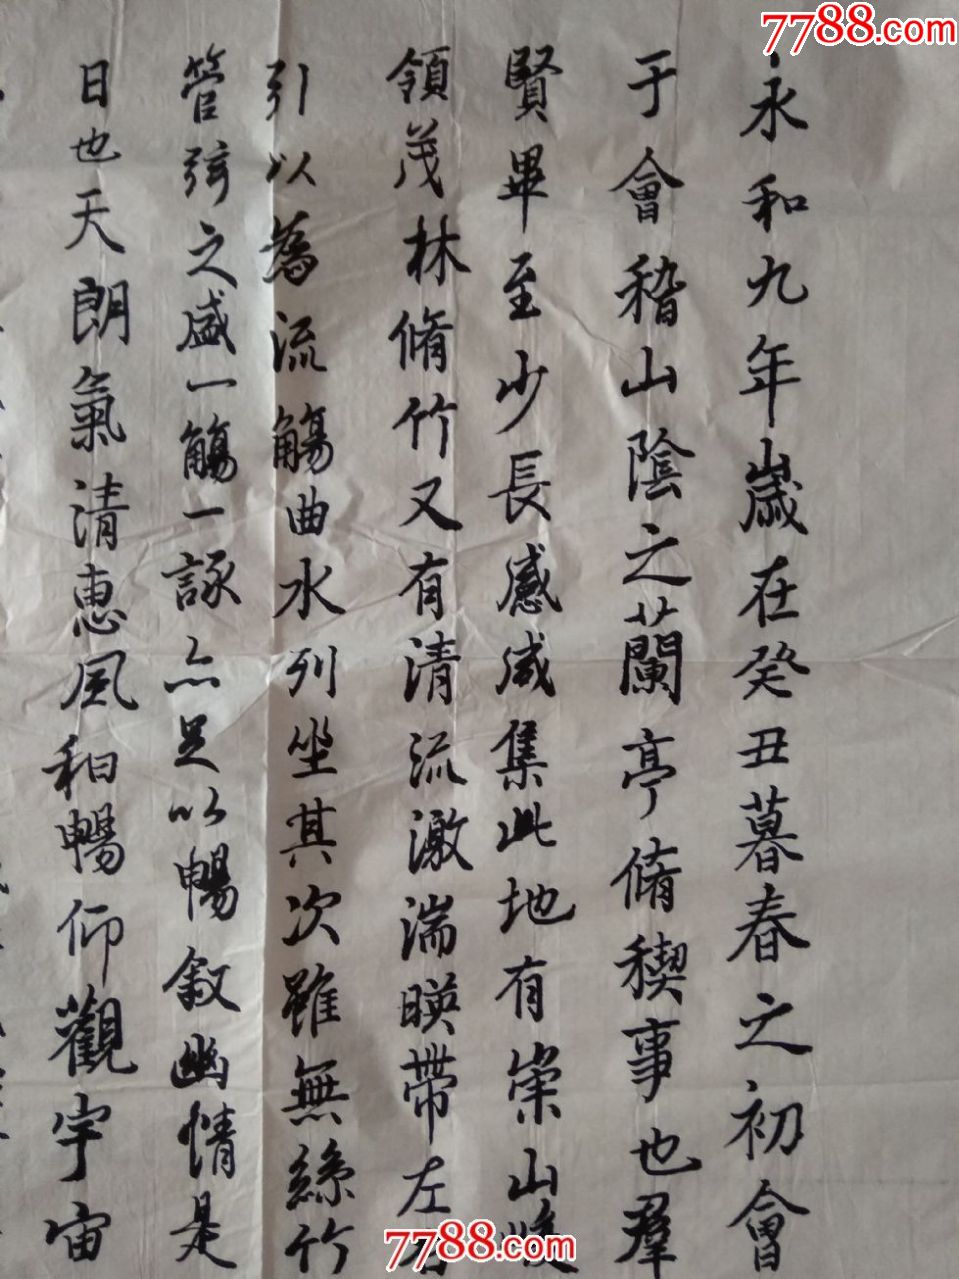 永和九年歲在癸丑暮春之初會
于會稽山陰之蘭亭脩稧事也羣
賢畢至少長感咸集此地有崇山峻
領茂林脩竹又有清流激湍暎帶左右
引以為流觴曲水列坐其次雖無絲竹
管弦之盛一觴一詠亦足以暢敘幽情是
日也天朗氣清惠風和暢仰觀宇宙
7788.com
7788.com